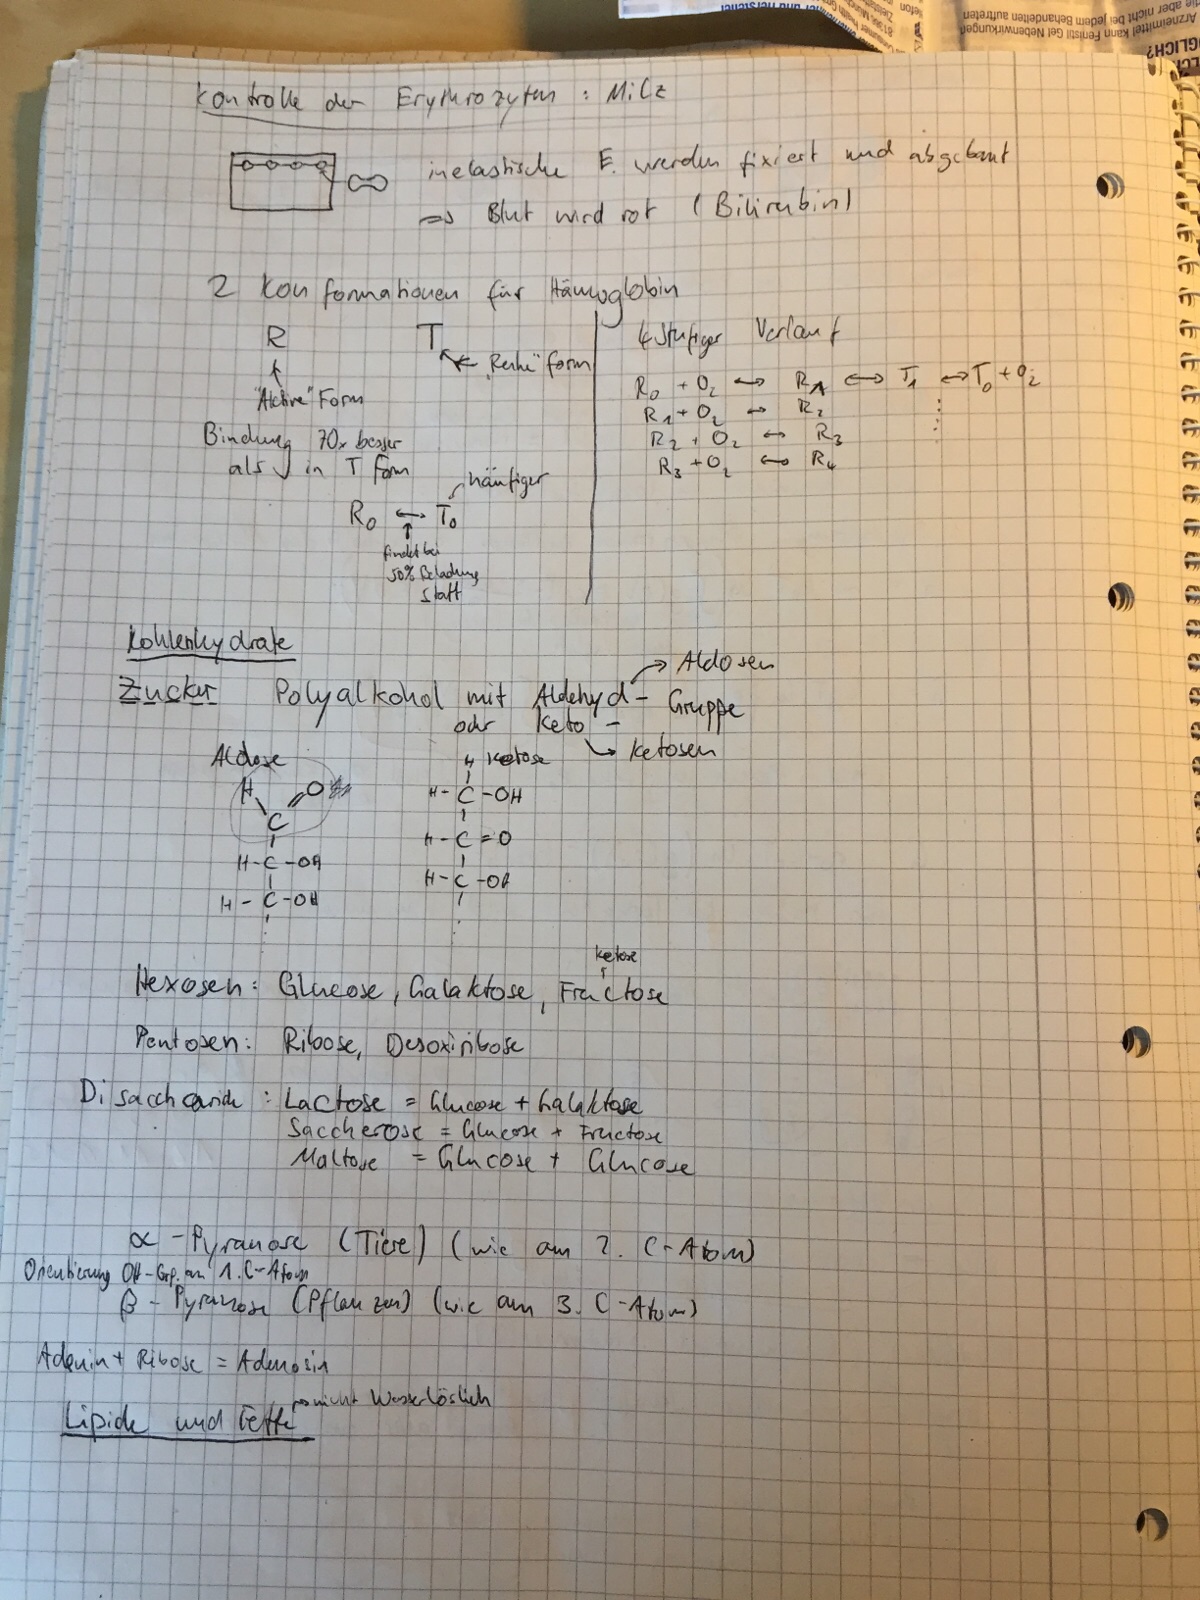 Kontrolle der Erythrozyten : Milz
inelastische E. werden fixiert und abgebaut
=> Blut wird rot (Bilirubin)
2 Konformationen für Hämoglobin
R T
"Ruhe"form
"Aktive" Form
Bindung 70x besser
als in T form
häufiger
R₀ ↔ T₀
findet bei
50% Beladung
statt
4 Stufiger Verlauf
R₀ + O₂ ↔ R₁ ↔ T₁ ↔ T₀ + O₂
R₁ + O₂ ↔ R₂
R₂ + O₂ ↔ R₃
R₃ + O₂ ↔ R₄
Kohlenhydrate
Zucker Polyalkohol mit Aldehyd - Gruppe
→ Aldosen
oder Keto -
→ Ketosen
Aldose
H O
C
H-C-OH
H-C-OH
H Ketose
H-C-OH
H-C=O
H-C-OH
Ketose
Hexosen: Glucose, Galaktose, Fructose
Pentosen: Ribose, Desoxiribose
Disaccharide : Lactose = Glucose + Galaktose
Saccherose = Glucose + Fructose
Maltose = Glucose + Glucose
α - Pyranose (Tiere) (wie am 2. C-Atom)
Orientierung OH-Grp. am 1. C-Atom
β - Pyranose (Pflanzen) (wie am 3. C-Atom)
Adenin + Ribose = Adenosin
→ nicht Wasserlöslich
Lipide und Fette